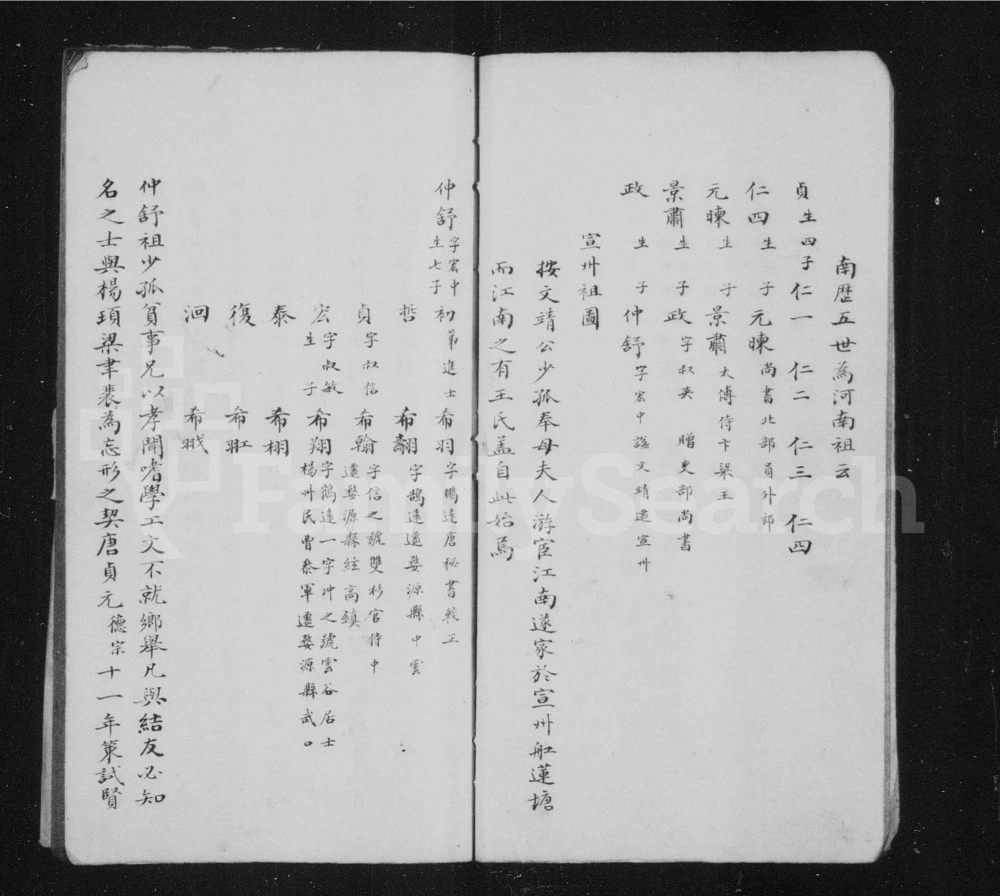 南歷五世為河南祖云
貞生四子仁一 仁二 仁三 仁四
仁四生 子元暕尚書北部員外郎
元暕生 子景肅太傅侍卞梁王
景肅生 子政字叔关 贈吏部尚書
政 生 子仲舒字宏中諡文靖遷宣州
宣州祖圖
按文靖公少孤奉母夫人游宦江南遂家於宣州舡蓮塘
而江南之有王氏盖自此始焉
仲舒字宏中生七子 初第進士 希羽字楊遠唐秘書較正
哲 希翿字鵠遠遷婺源縣中雲
貞字叔信 希翰字信之號雙杉官侍中遷婺源縣絃高鎮
宏字叔敏生 子 希翔字鶴遠一字冲之號雲谷居士楊州民曹叅軍遷婺源縣武口
泰 希栩
復 希羾
洄 希戭
仲舒祖少孤貧事兄以孝聞嗜學工文不就鄉舉凡與結友必知
名之士與楊頊梁聿裴為忘形之契唐貞元德宗十一年策試賢
FamilySearch